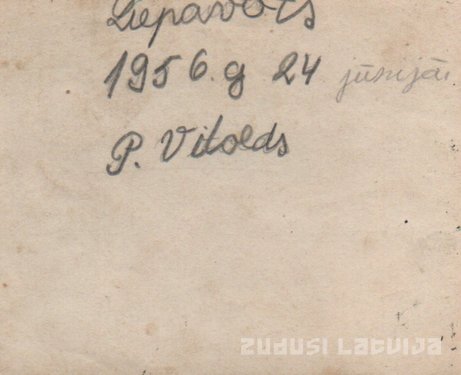 1956. g 24 jūnijā.
P. Vitolds
ZUDUSI LATVIJA